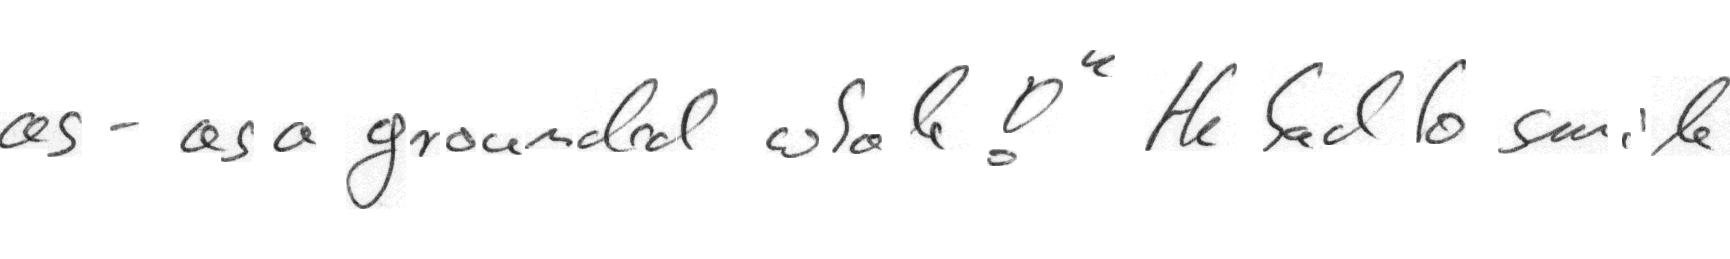 as - as a grounded whale!" He had to smile